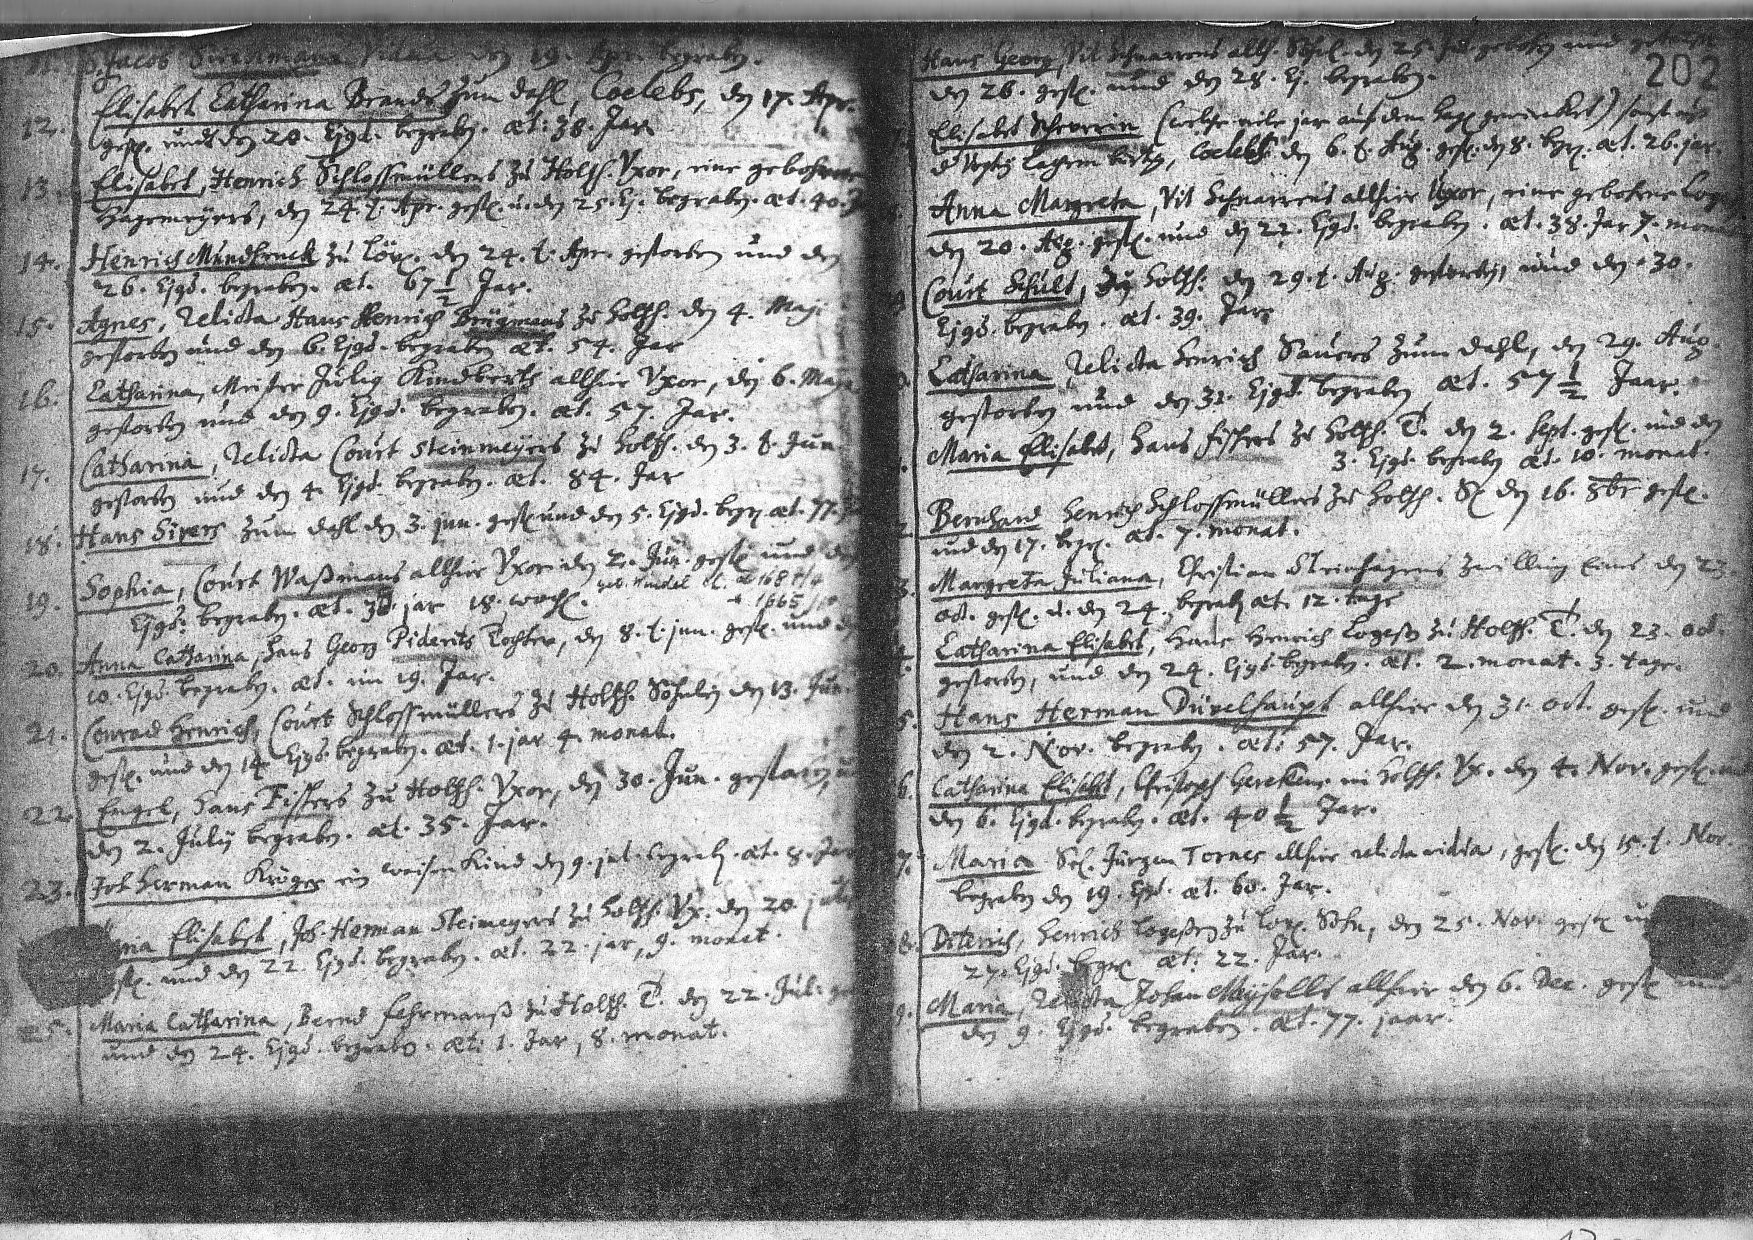 11. S. Jacob Vidua den 19. Apr. begraben.
12. Elisabet Catharina Brands zum Dahl, Coelebs, den 17. Apr.
gest. und den 20. Ejqd. begraben. æt. 38. Jar
13. Elisabet, Henrich Schlossmüllers zu Holtzh. Uxor, eine gebohrne
Hagemeÿers, den 24. t. Apr. gest. u. den 25. Ej. begraben. æt. 40.
14. Henrich Mundhenck zu Löv. den 24. t. Apr. gestorben und den
26. Ejqd. begraben. æt. 67 1/2 Jar.
15. Agnes, relicta Hans Henrich Brügmans zu Holtzh. den 4. Maji
gestorben und den 6. Ejqd. begraben æt. 54. Jar
16. Catharina, Meister Jülig Kindberts allhier Uxor, den 6. Maji
gestorben und den 9. Ejqd. begraben. æt. 57. Jar.
17. Catharina, relicta Court Steinmeÿers zu Holtzh. den 3. t. Jun
gestorben und den 4. Ejqd. begraben. æt. 84. Jar
18. Hans Sivers zum Dahl den 3. Jun. gest und den 5. Ejqd. begr æt. 77.
19. Sophia, Court Waßmans allhier Uxor den 2. Jun. gest und den
Ejqd. begraben. æt. jar 18. woch.
20. Anna Catharina, Hans Georg Piderits Tochter, den 8. t. jun. gest. und
10. Ejqd. begraben. æt. im 19. Jar.
21. Conrad Henrich, Court Schlossmüllers zu Holtzh. Söhnlein den 13. Jun.
gest. und den 14 Ejqd. begraben. æt. 1. jar 4. monat.
22. Engel, Hans Fischers zu Holtzh. Uxor, den 30. Jun. gestorben,
den 2. Julÿ begraben. æt. 35. Jar.
23. Joh Herman Krüger ein weisen Kind den 9. jul. begrab. æt. 8. Jar
Elisabet, Joh. Herman Steimeyers zu Holtzh. Ux. den 20 jul
gest. und den 22. Ejqd. begraben. æt. 22. jar, 9. monat.
25. Maria Catharina, Bernd Fehrmanß zu Holtzh. T. den 22. Jul.
und den 24. Ejqd. begraben. æt. 1. Jar, 8. monat.
202
Hans Georg, Vit Schnarrens allh. den 25. Jul gebohren und
den 26. gest. und den 28. Ej. begraben.
Elisabet (welche viele jar auf dem gewircket)
Coelebs den 6. t. Aug. gest. den 8. begr. æt. 26. jar.
Anna Margreta, Vit Schnarrens allhier Uxor, eine gebohrne
den 20. Aug. gest. und den 22. Ejqd. begraben. æt. 38. Jar 7. monat
Court Schult, zu Holtzh. den 29. t. Aug. gestorben, und den 30.
Ejqd. begraben. æt. 39. Jar
Catharina, relicta Henrich Sauers zum Dahl, den 29. Aug.
gestorben und den 31. Ejqd. begraben æt. 57 1/2 Jaar.
Maria Elisabet, Hans Fischers zu Holtzh. T. den 2. Sept. gest. und den
3. Ejqd. begraben æt. 10. monat.
Bernhard Henrich Schlossmüllers zu Holtzh. S. den 16. 8br gest.
und den 17. begr. æt. 7. monat.
3. Margreta Juliana, Christian Steinhagens zwilling Eins den 23
oct. gest. u. den 24. begrab æt. 12. tage
Catharina Elisabet, Hans Henrich Logeß zu Holtzh. T. den 23. oct.
gestorben, und den 24. Ejqd. begraben. æt. 2. monat. 3. tage.
5. Hans Herman Düvelhaupt allhier den 31. oct. gest. und
den 2. Nov. begraben. æt: 57. Jar.
6. Catharina Elisabet, Christoph Gereken in Holtzh. Ux. den 4. Nov. gest. und
den 6. Ejqd. begraben. æt. 40 1/2 Jar.
7. Maria Sel. Jürgen Tornes allhier relicta vidua, gest. den 15. t. Nov.
begraben den 19. Ejqd. æt. 60. Jar.
8. Diterich, Henrich Logeßen zu Sohn, den 25. Nov. gest
27. Ejqd. begr. æt: 22. Jar.
9. Maria, relicta Johan Meÿsolls allhier den 6. Dec. gest. und
den 9. Ejqd. begraben. æt. 77. jaar.